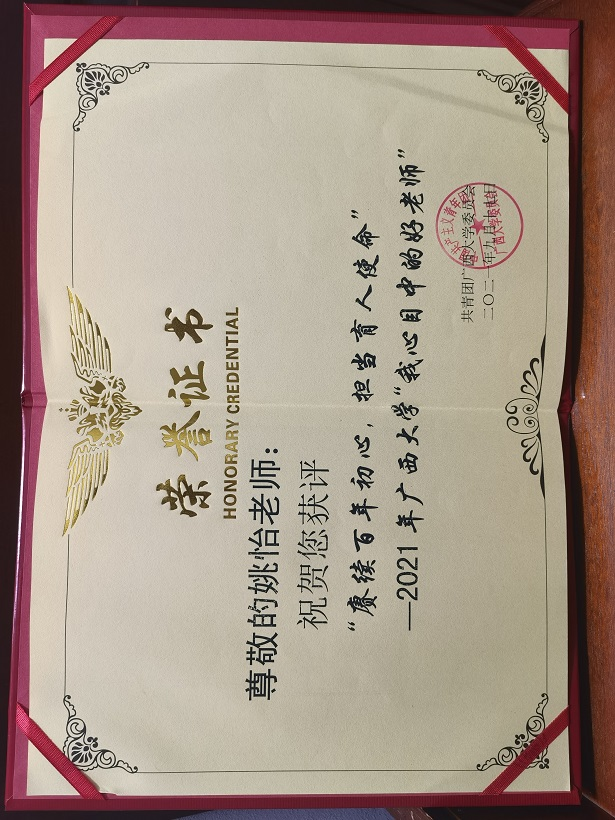 荣誉证书
HONORARY CREDENTIAL
尊敬的姚怡老师：
祝贺您获评
“赓续百年初心，担当育人使命”
—2021年广西大学“我心目中的好老师”
共青团广西大学委员会
二〇二一年九月